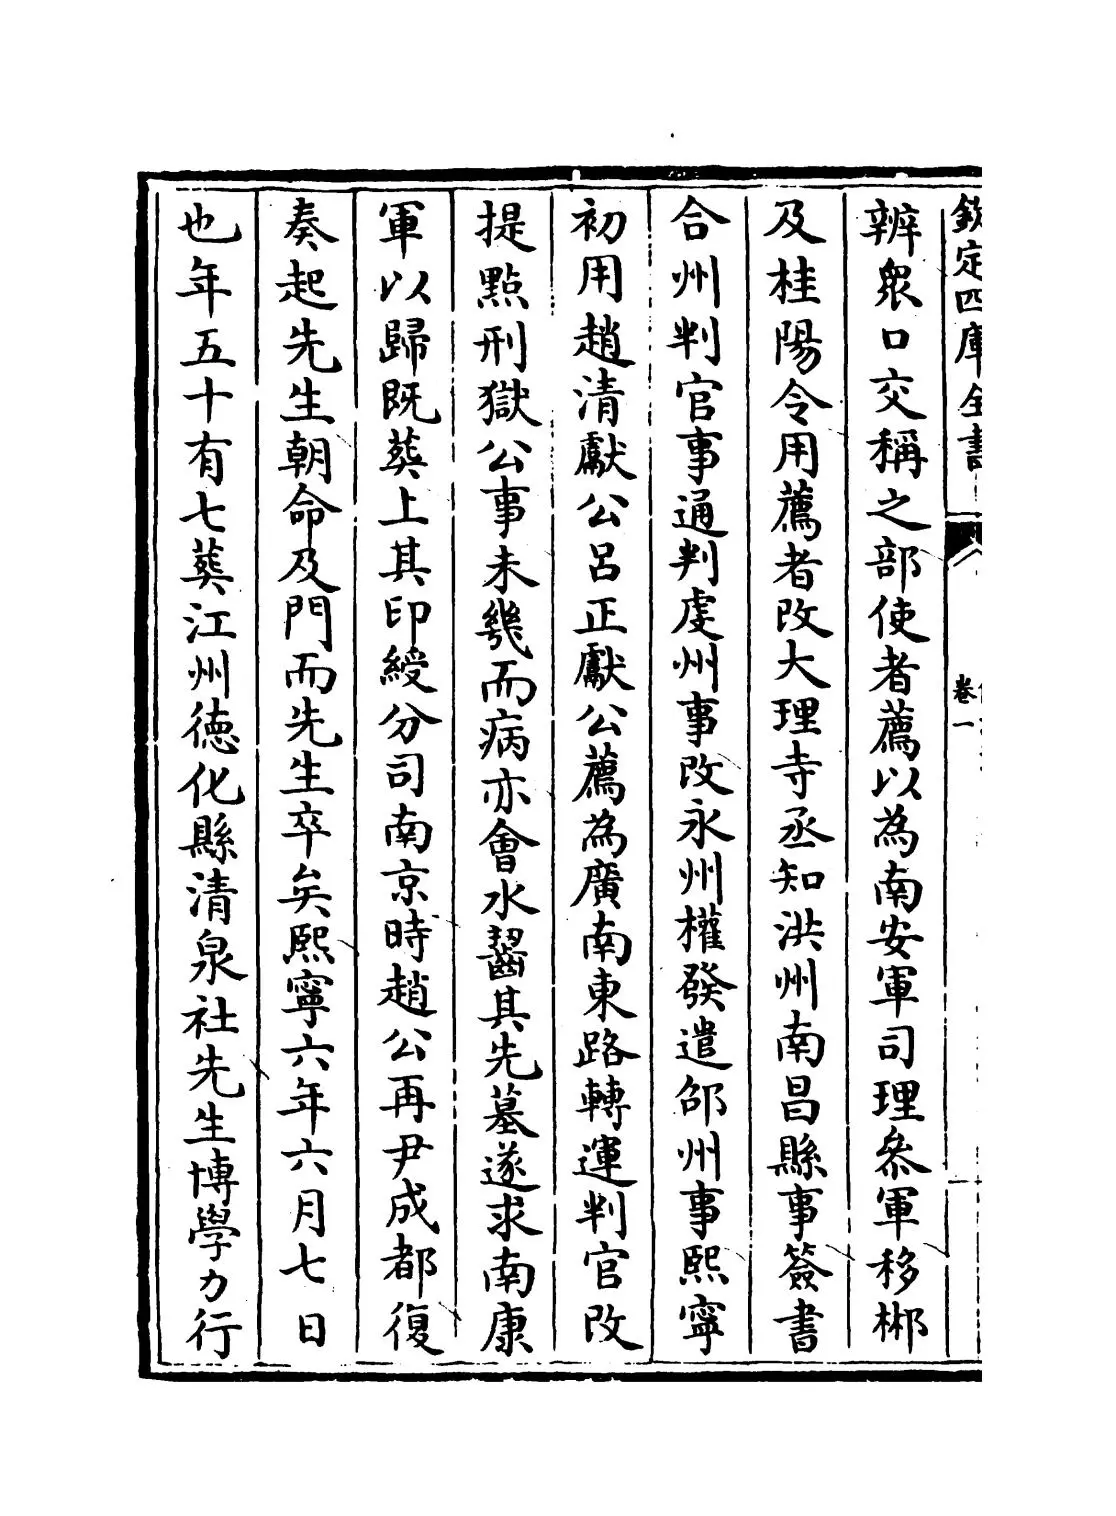 欽定四庫全書
卷一
辨衆口交稱之部使者薦以為南安軍司理叅軍移郴
及桂陽令用薦者改大理寺丞知洪州南昌縣事簽書
合州判官事通判虔州事改永州權發遣邵州事熙寧
初用趙清獻公呂正獻公薦為廣南東路轉運判官改
提點刑獄公事未幾而病亦會水齧其先墓遂求南康
軍以歸既葬上其印綬分司南京時趙公再尹成都復
奏起先生朝命及門而先生卒矣熙寧六年六月七日
也年五十有七葬江州德化縣清泉社先生博學力行